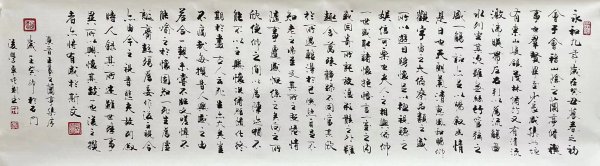 永和九年歲在癸丑暮春之初
會于會稽山陰之蘭亭脩禊
事也羣賢畢至少長咸集此地
有崇山峻領茂林脩竹又有清流
激湍映帶左右引以為流觴曲
水列坐其次雖無絲竹管弦之
盛一觴一詠亦足以暢敘幽情
是日也天朗氣清惠風和暢仰
觀宇宙之大俯察品類之盛
所以遊目騁懷足以極視聽之
娛信可樂也夫人之相與俯仰
一世或取諸懷抱悟言一室之內
或因寄所託放浪形骸之外雖
趣舍萬殊靜躁不同當其欣
於所遇暫得於己快然自足不
知老之將至及其所之既倦情
隨事遷感慨係之矣向之所
欣俛仰之間以為陳迹猶不
能不以之興懷況脩短隨化終
期於盡古人云死生亦大矣豈
不痛哉每攬昔人興感之由
若合一契未嘗不臨文嗟悼不
能喻之於懷固知一死生為虛誕
齊彭殤為妄作後之視今
亦由今之視昔悲夫故列敘
時人錄其所述雖世殊事
異所以興懷其致一也後之攬
者亦將有感於斯文